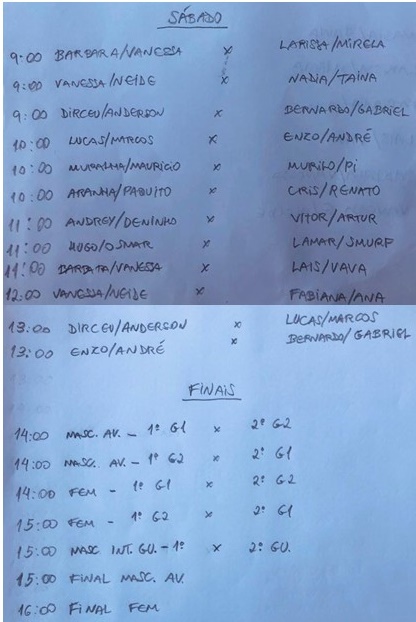 SÁBADO
9:00 BARBARA/VANESSA x LARISSA/MIRELA
9:00 VANESSA/NEIDE x NADIA/TAINA
9:00 DIRCEU/ANDERSON x BERNARDO/GABRIEL
10:00 LUCAS/MARCOS x ENZO/ANDRÉ
10:00 MURALHA/MAURICIO x MURILO/PI
10:00 ARANHA/PAQUITO x CRIS/RENATO
11:00 ANDREY/DENINHO x VITOR/ARTUR
11:00 HUGO/OSMAR x LAMAR/SMURF
11:00 BARBARA/VANESSA x LAIS/VAVA
12:00 VANESSA/NEIDE x FABIANA/ANA
13:00 DIRCEU/ANDERSON x LUCAS/MARCOS
13:00 ENZO/ANDRÉ x BERNARDO/GABRIEL
FINAIS
14:00 MASC. AV. - 1º G1 x 2º G2
14:00 MASC. AV. - 1º G2 x 2º G1
14:00 FEM - 1º G1 x 2º G2
15:00 FEM - 1º G2 x 2º G1
15:00 MASC INT. GU. - 1º x 2º GU.
15:00 FINAL MASC. AV.
16:00 FINAL FEM